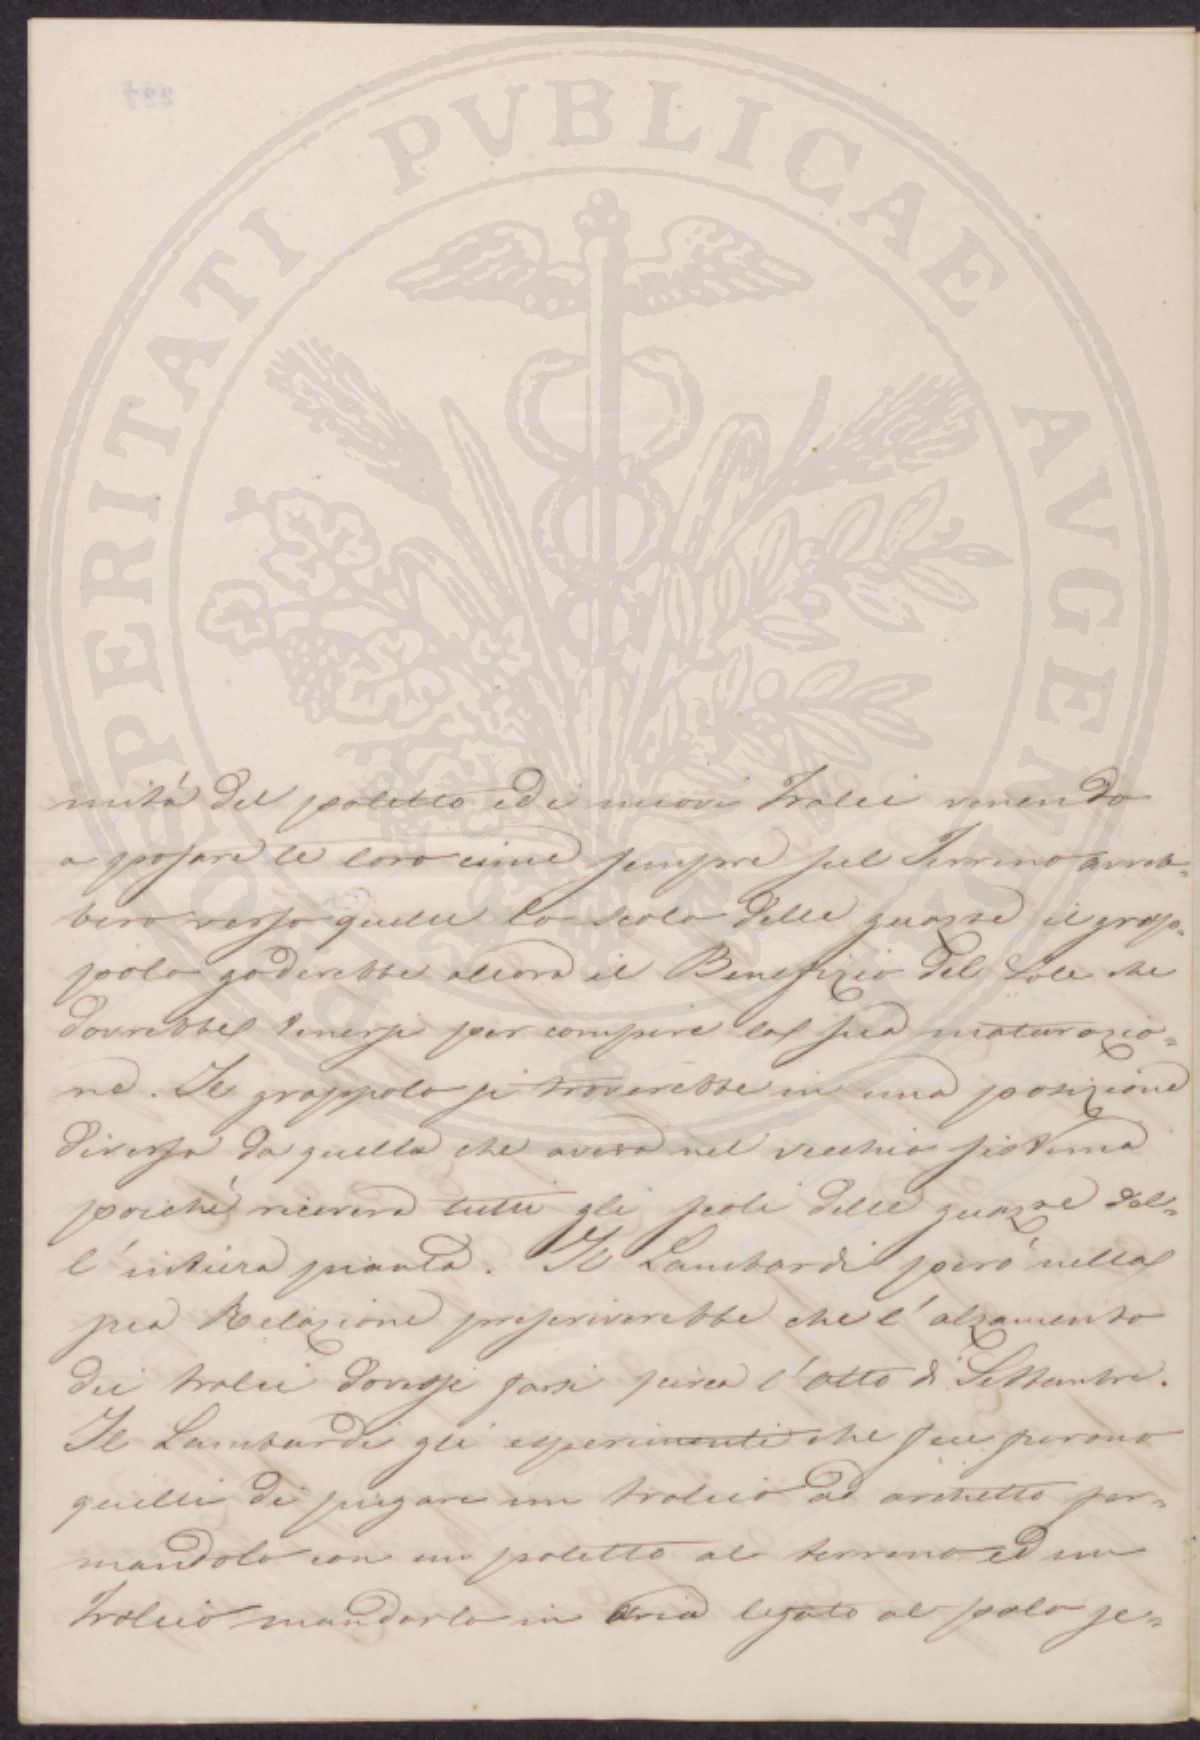 PROSPERITATI PVBLICAE AVGENDAE
mità del paletto ed i nuovi Tralci venendo
a posare le loro cime sempre sul Terreno avreb=
bero verso quelle lo scolo delle guazze il grap=
polo goderebbe allora il Benefizio del Sole che
dovrebbe tenersi per compire la sua maturazio=
ne. Il grappolo si troverebbe in una posizione
diversa da quella che aveva nel vecchio sistema
poiché riceveva tutti gli scoli delle guazze del=
l'intiera pianta. Il Lambardi però nella
sua Relazione preferirerebbe che l'alzamento
dei tralci dovesse farsi circa l'otto di Settembre.
Il Lambardi gli esperimenti che fece furono
quelli di piegare un tralcio ad archetto fer=
mandolo con un paletto al terreno ed un
Tralcio mandarlo in aria legato al palo se=